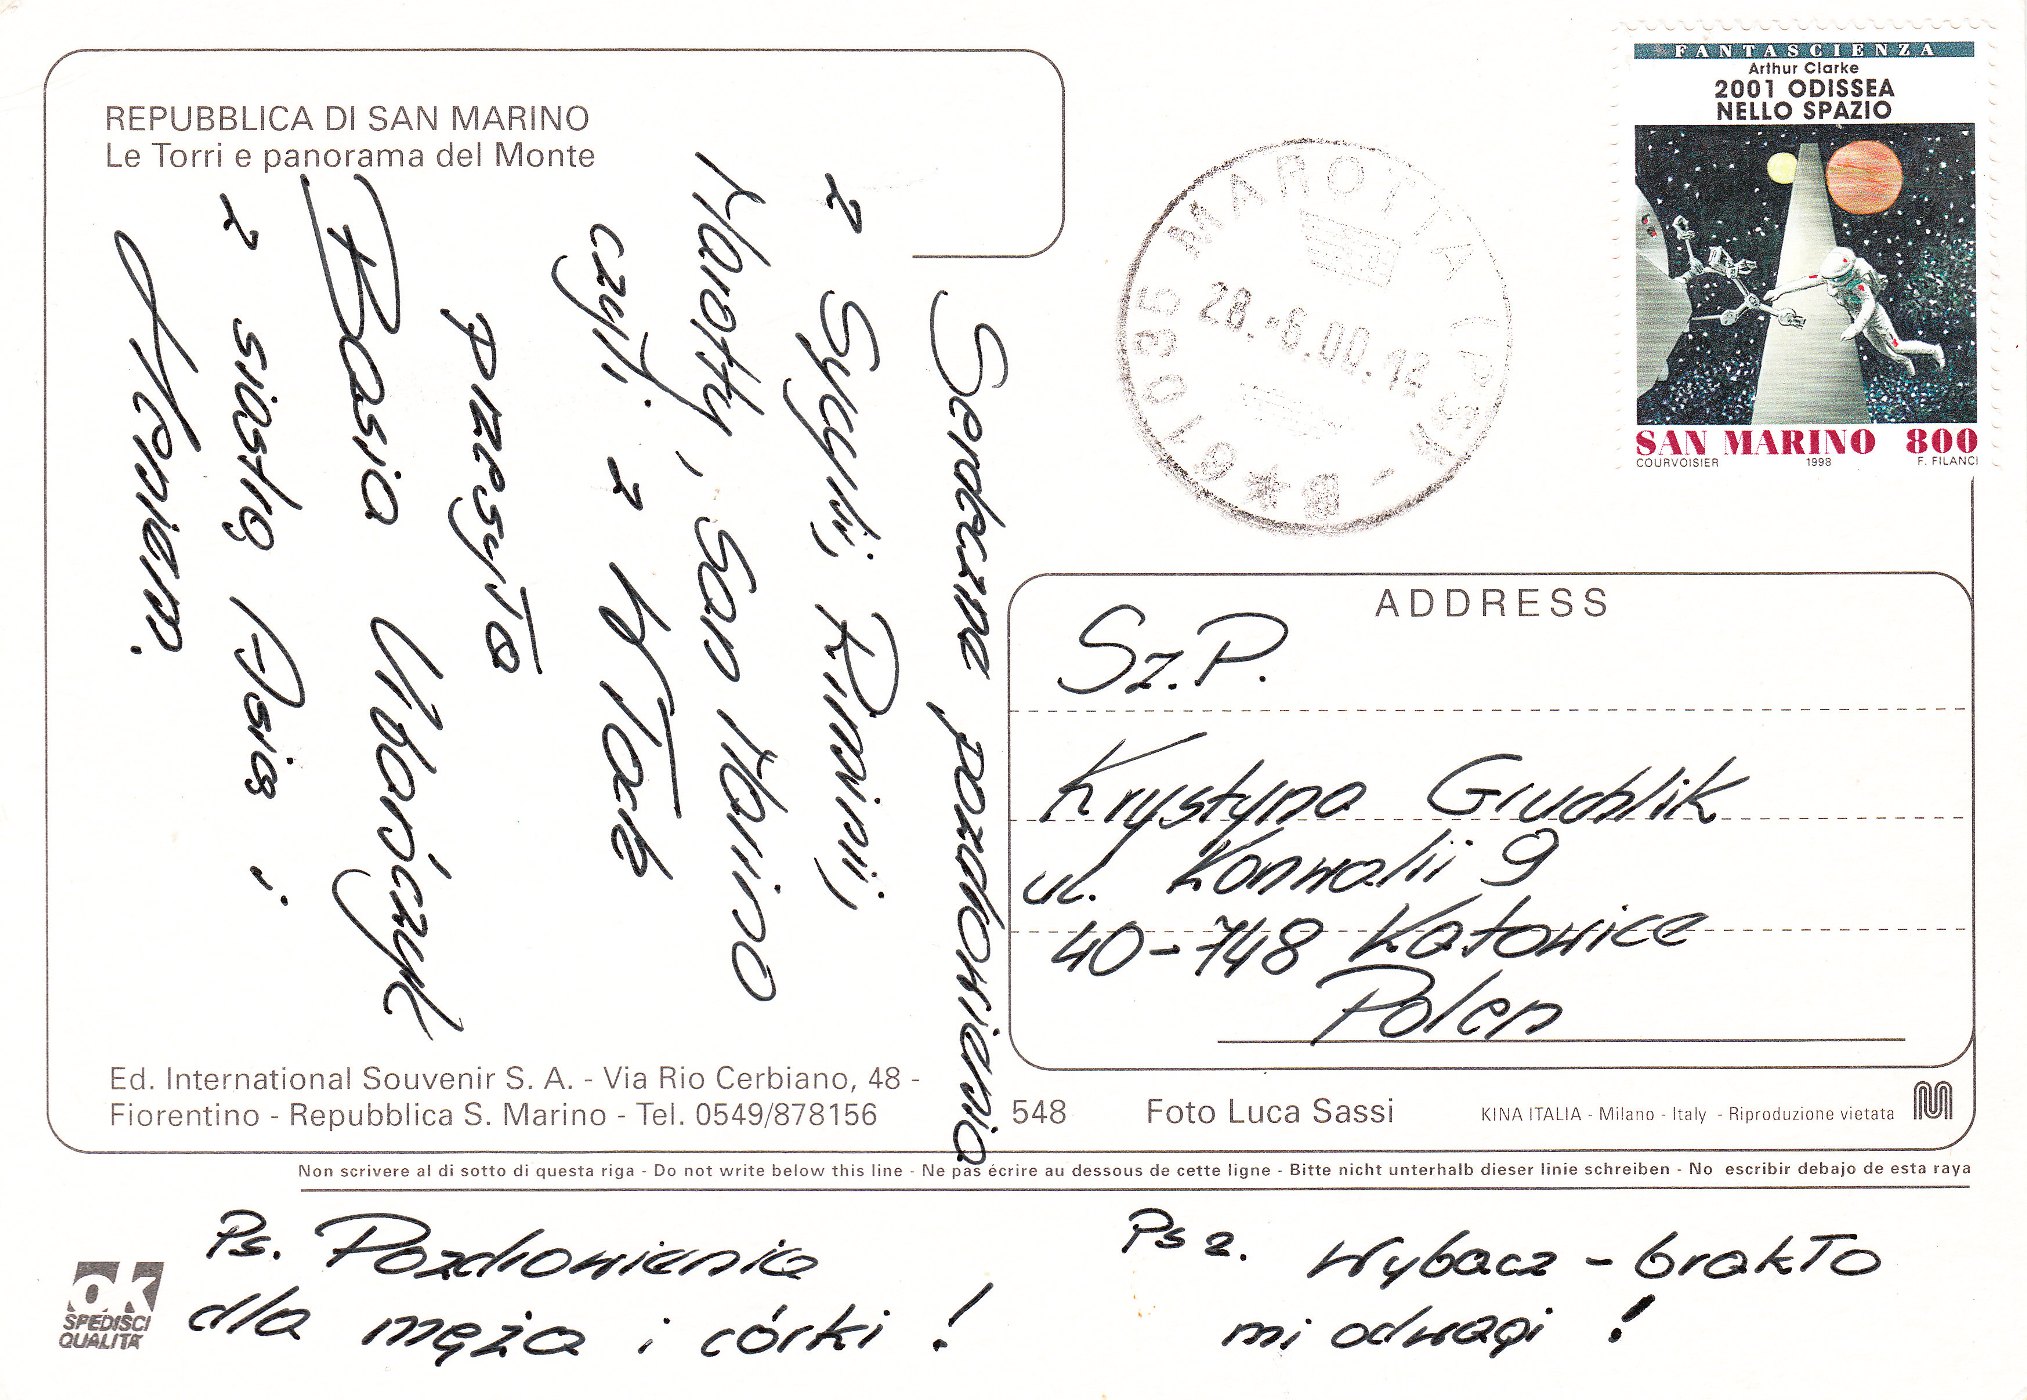 REPUBBLICA DI SAN MARINO
Le Torri e panorama del Monte
Serdeczne pozdrowienia
z Sycylii, Rimini,
Marotty, San Marino
czyli z Włoch
przesyła
Basia Urbańczyk
z siostrą Asią i
Heniem.
Ed. International Souvenir S. A. - Via Rio Cerbiano, 48 -
Fiorentino - Repubblica S. Marino - Tel. 0549/878156
FANTASCIENZA
Arthur Clarke
2001 ODISSEA
NELLO SPAZIO
SAN MARINO 800
COURVOISIER 1998 F. FILANCI
61035 MAROTTA (PS)
28.-6.00.12
ADDRESS
Sz.P.
Krystyna Gruchlik
ul. Konwalii 9
40-748 Katowice
Polen
548 Foto Luca Sassi KINA ITALIA - Milano - Italy - Riproduzione vietata
Non scrivere al di sotto di questa riga - Do not write below this line - Ne pas écrire au dessous de cette ligne - Bitte nicht unterhalb dieser linie schreiben - No escribir debajo de esta raya
Ps. Pozdrowienia
dla męża i córki!
Ps 2. Wybacz - brakło
mi odwagi!
ok
SPEDISCI
QUALITA'